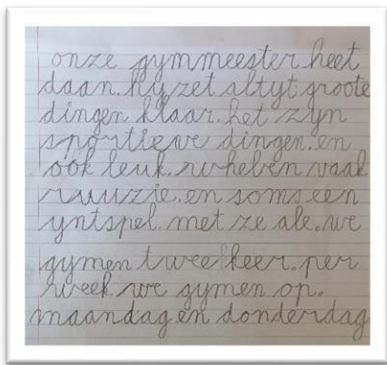 onze gymmeester heet
daan. hy zet altyt groote
dingen klaar. het zyn
sportieve dingen. en
ook leuk. w heben vaak
ruuzie. en soms een
yntspel. met ze ale. we
gymen twee keer. per
week we gymen op.
maandag en donderdag